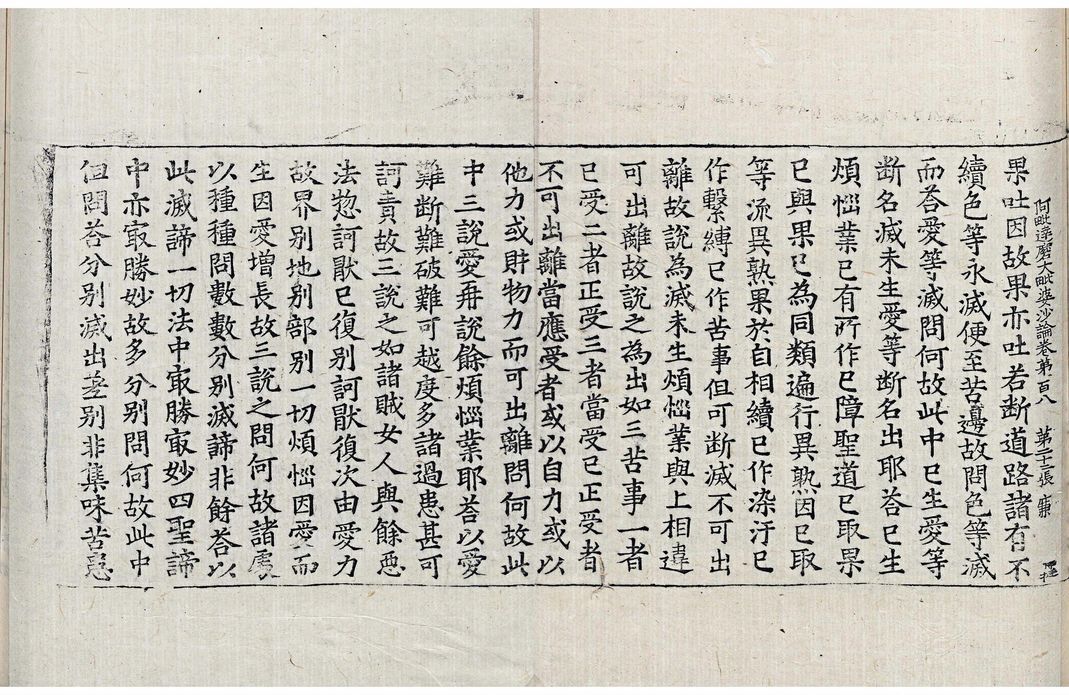 阿毗達磨大毗婆沙論卷第百八 第二十二張 廉
果吐因故果亦吐若断道路諸有不
續色等永滅便至苦邊故問色等滅
而荅愛等滅問何故此中已生愛等
断名滅未生愛等断名出耶荅已生
煩惱業已有所作已障聖道已取果
已與果已為同類遍行異熟因已取
等流異熟果於自相續已作染汙已
作繫縛已作苦事但可断滅不可出
離故說為滅未生煩惱業與上相違
可出離故說之為出如三苦事一者
已受二者正受三者當受已正受者
不可出離當應受者或以自力或以
他力或財物力而可出離問何故此
中三說愛再說餘煩惱業耶荅以愛
難断難破難可越度多諸過患甚可
訶責故三說之如諸賊女人與餘惡
法惣訶猒已復別訶猒復次由愛力
故界別地別部別一切煩惱因愛而
生因愛增長故三說之問何故諸處
以種種問數數分別滅諦非餘荅以
此滅諦一切法中㝡勝㝡妙四聖諦
中亦㝡勝妙故多分別問何故此中
但問荅分別滅出差別非集味苦患